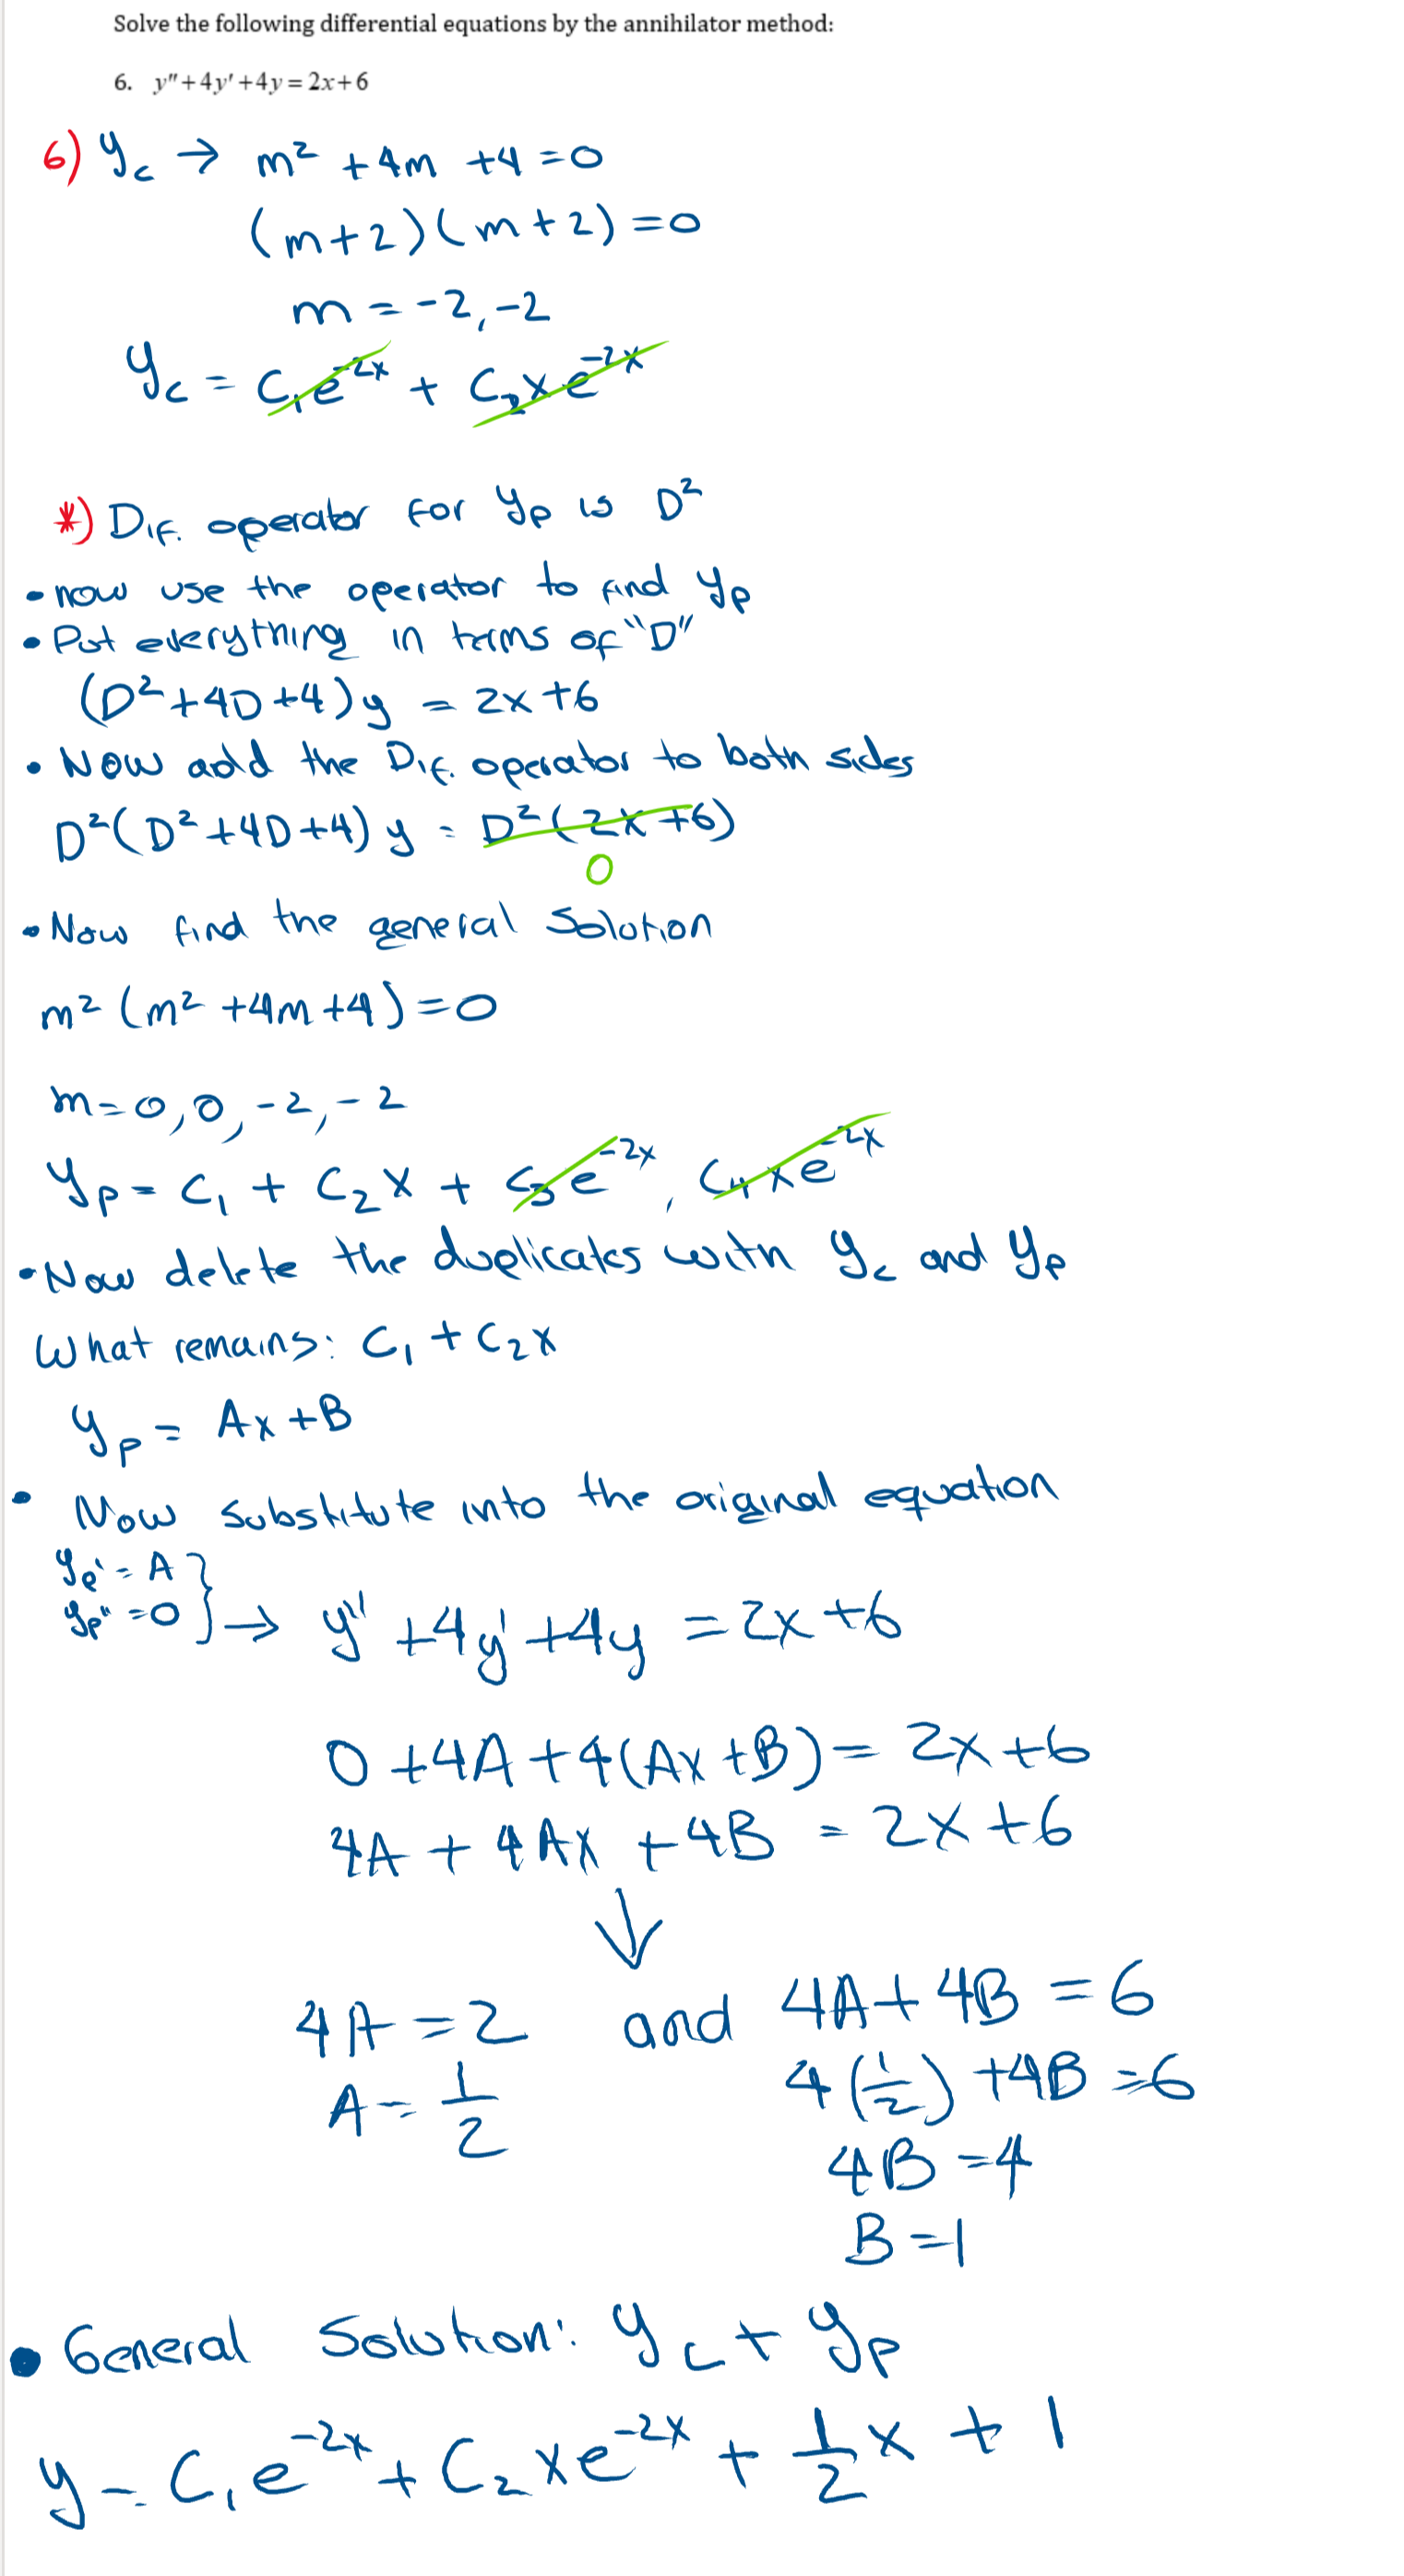 Solve the following differential equations by the annihilator method:
6. y″+4y′+4y=2x+6
6) y_c → m² + 4m + 4 = 0
(m+2)(m+2) = 0
m = -2, -2
y_c = C₁e^-2x + C₂xe^-2x
*) Dif. operator for y_p is D²
• now use the operator to find y_p
• Put everything in terms of "D"
(D²+4D+4)y = 2x+6
• Now add the Dif. operator to both sides
D²(D²+4D+4)y = D²(2x+6)
0
• Now find the general solution
m²(m²+4m+4)=0
m=0,0,-2,-2
y_p = C₁ + C₂x + C₃e^-2x, C₄xe^-2x
• Now delete the duplicates with y_c and y_p
What remains: C₁ + C₂x
y_p = Ax + B
• Now substitute into the original equation
y_p' = A }
y_p" = 0 } → y" + 4y' + 4y = 2x + 6
0 + 4A + 4(Ax + B) = 2x + 6
4A + 4Ax + 4B = 2x + 6
↓
4A = 2 and 4A + 4B = 6
A = 1/2 4(1/2) + 4B = 6
4B = 4
B = 1
• General Solution: y_c + y_p
y = C₁e^-2x + C₂xe^-2x + 1/2 x + 1